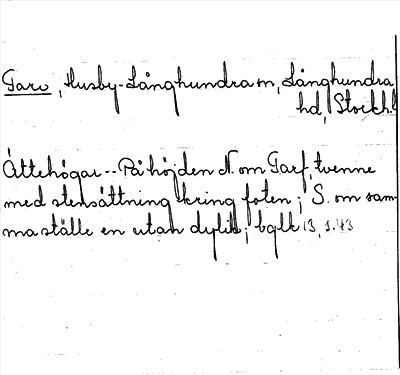 Garv, Husby-Långhundra sn, Långhundra
hd, Stockh.l
Ättehögar -- På höjden N. om Garf, tvenne
med stensättning kring foten; S. om sam-
ma ställe en utan dylik; bglk 13, s. 43